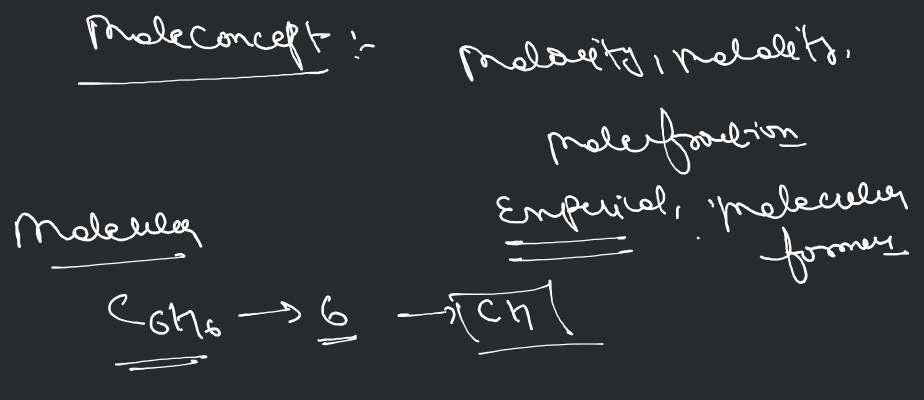 Moleconcept :-
Molarity, molality,
molefraction
Emperical, molecular
Molecular
formula
C6H6 → 6 → CH